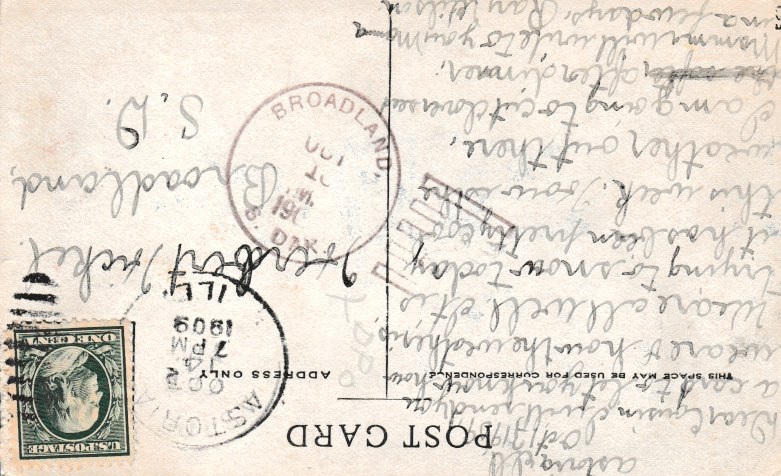 POST CARD
THIS SPACE MAY BE USED FOR CORRESPONDENCE
ADDRESS ONLY
Astoria Ill
Oct 13/1909
Dear Cousin I will send you
a card to let you know how
we are & how the weather is,
We are all well It is
trying to snow today
it has been pretty cool
this week, how is the
weather out there,
I am going to cut clover seed
after dinner.
Mamma will write to your Mama
in a few days, Ray Wilson
ASTORIA
ILL.
OCT
7 PM
1909
U.S. POSTAGE
ONE CENT
BROADLAND,
OCT
S. DAK.
DPO
Herbert
Broadland,
S.D.